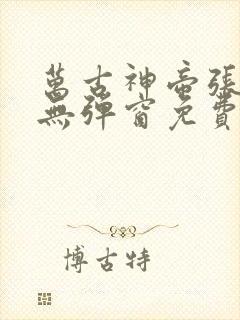 萬古神帝張
無彈窗免費
博古特